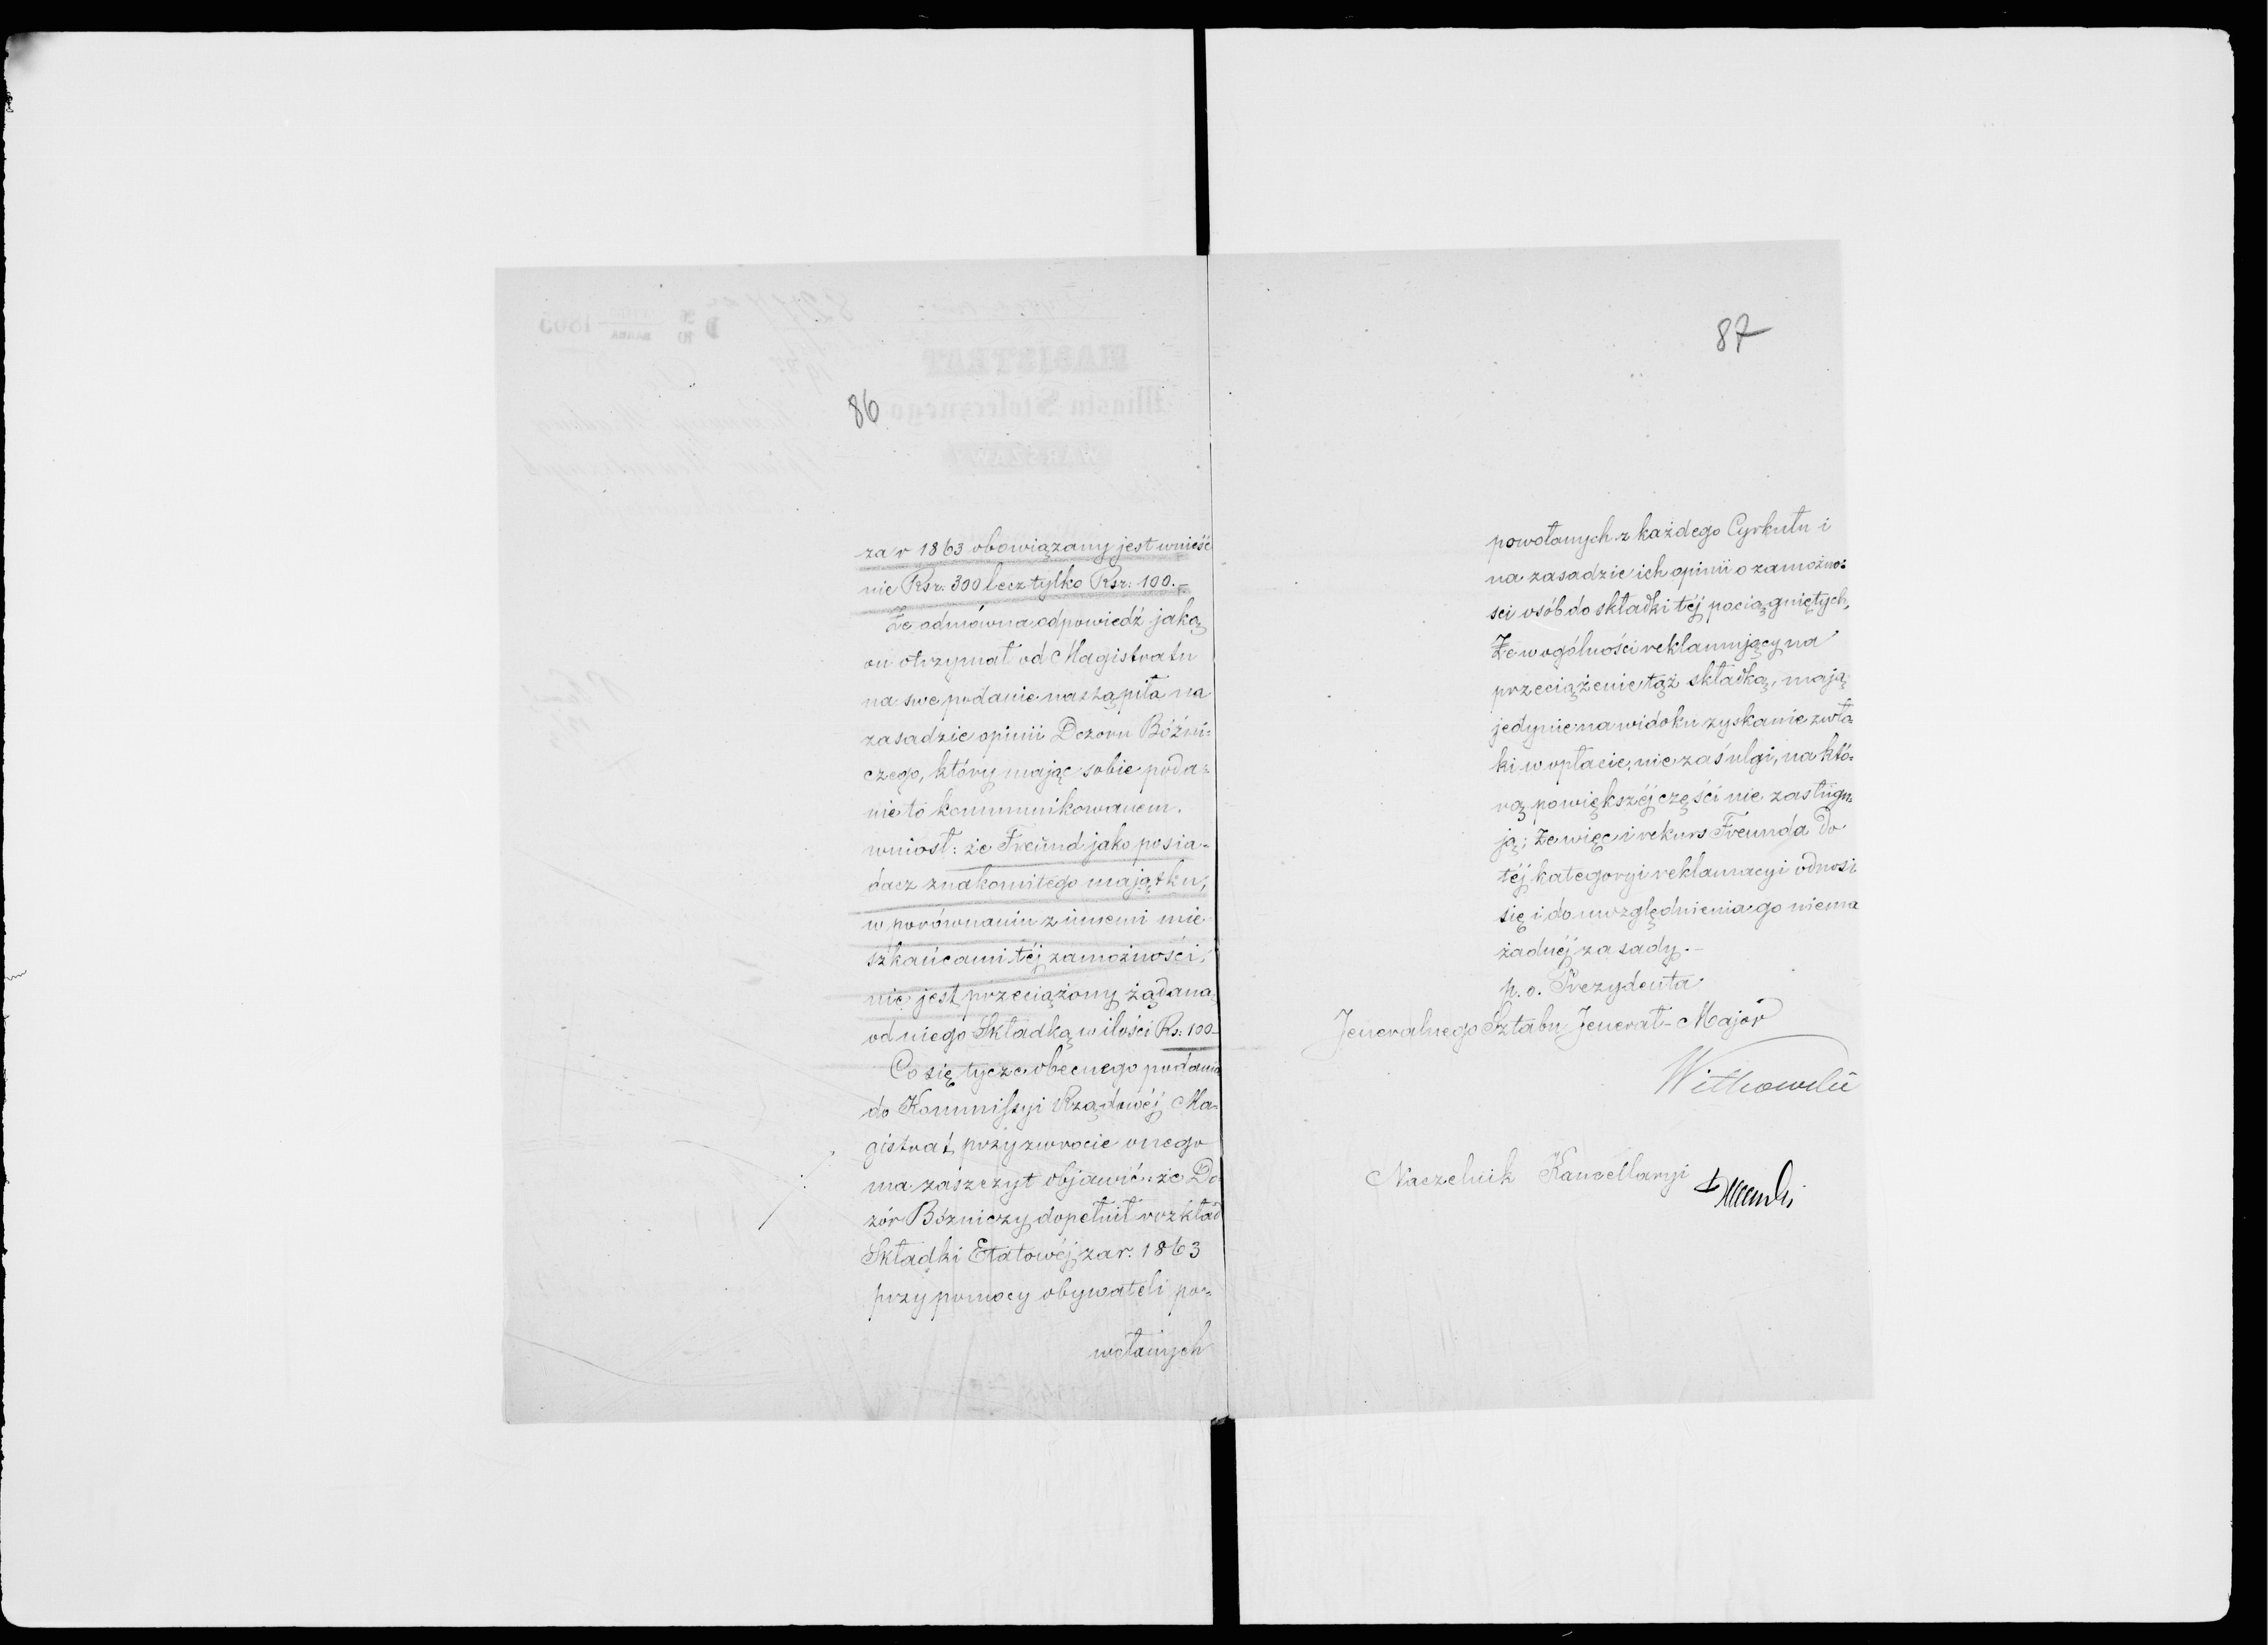 86
za r 1863 obowiązany jest wnieść
nie Rsr. 300 lecz tylko Rsr: 100.–
Że odmówna odpowiedź jaką
on otrzymał od Magistratu
na swe podanie nastąpiła na
zasadzie opinii Dozoru Bóźni=
czego, który mając sobie poda=
nie to kommunikowanem,
wniosł: że Freünd jako posia-
dacz znakomitego majątku,
w porównaniu z innemi mie
szkańcami téj zamożności,
nie jest przeciążony żądaną
od niego Składką w ilości Rs: 100–
Co się tycze obecnego podania
do Kommissyi Rządowéj Ma-
gistrat przy zwrocie onego
ma zaszczyt objawić: że Do
zór Bóżniczy dopełnił rozkład
Składki Etatowéj za r. 1863
przy pomocy obywateli po=
wołanych
87
powołanych z każdego Cyrkułu i
na zasadzie ich opinii o zamożno=
ści osób do składki téj pociągniętych,
Że w ogólności reklamujący na
przeciążenie tąż składką, mają
jedynie na widoku zyskanie zwło
ki w opłacie, nie zaś ulgi, na któ=
rą powiększéj części nie zasługu=
ją; Że więc i rekurs Freunda do
téj kategoryi reklamacyi odnosi
się i do uwzględnienia go niema
żadnéj zasady.–
p. o. Prezydenta
Jeneralnego Sztabu Jenerał-Major
Witkowski
Naczelnik Kancellaryi